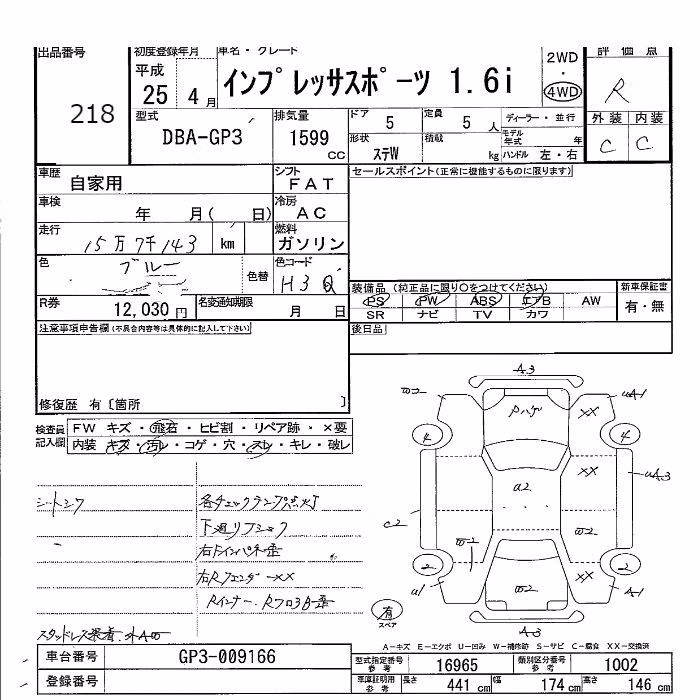 出品番号 初度登録年月 車名・グレード 評価点
218 平成 25 4月 インプレッサスポーツ 1.6i 2WD・4WD R
型式 排気量 ドア 定員 ディーラー・並行 外装 内装
DBA-GP3 1599 CC 5 5人 モデル年式 年 C C
形状 積載
ステW kg ハンドル 左・右
車歴 自家用 シフト FAT セールスポイント(正常に機能するものに限ります)
車検 年 月( 日) 冷房 AC
走行 15万7千143 km 燃料 ガソリン
色 ブルー 色替 色コード H3Q
装備品(純正品に限り○をつけてください) 新車保証書
PS PW ABS エアB AW 有・無
SR ナビ TV カワ
R券 12,030円 名変通知期限 月 日
後日品
注意事項申告欄(不具合内容等は具体的に記入して下さい)
修復歴 有〔箇所 〕
検査員記入欄 FW キズ・飛石・ヒビ割・リペア跡・×要
内装 キズ・汚レ・コゲ・穴・スレ・キレ・破レ
各チェックランプ点灯
A3
A1
Rハゲ
XX
4 4
XX
A3
a2
C2
XX
2 2
A1
A3
有
スペア
A−キズ E−エクボ U−凹み W−補修跡 S−サビ C−腐食 XX−交換済
車台番号 GP3-009166 型式指定番号 参考 16965 類別区分番号 参考 1002
登録番号 車庫証明用 参考 長さ 441 cm 幅 174 cm 高さ 146 cm